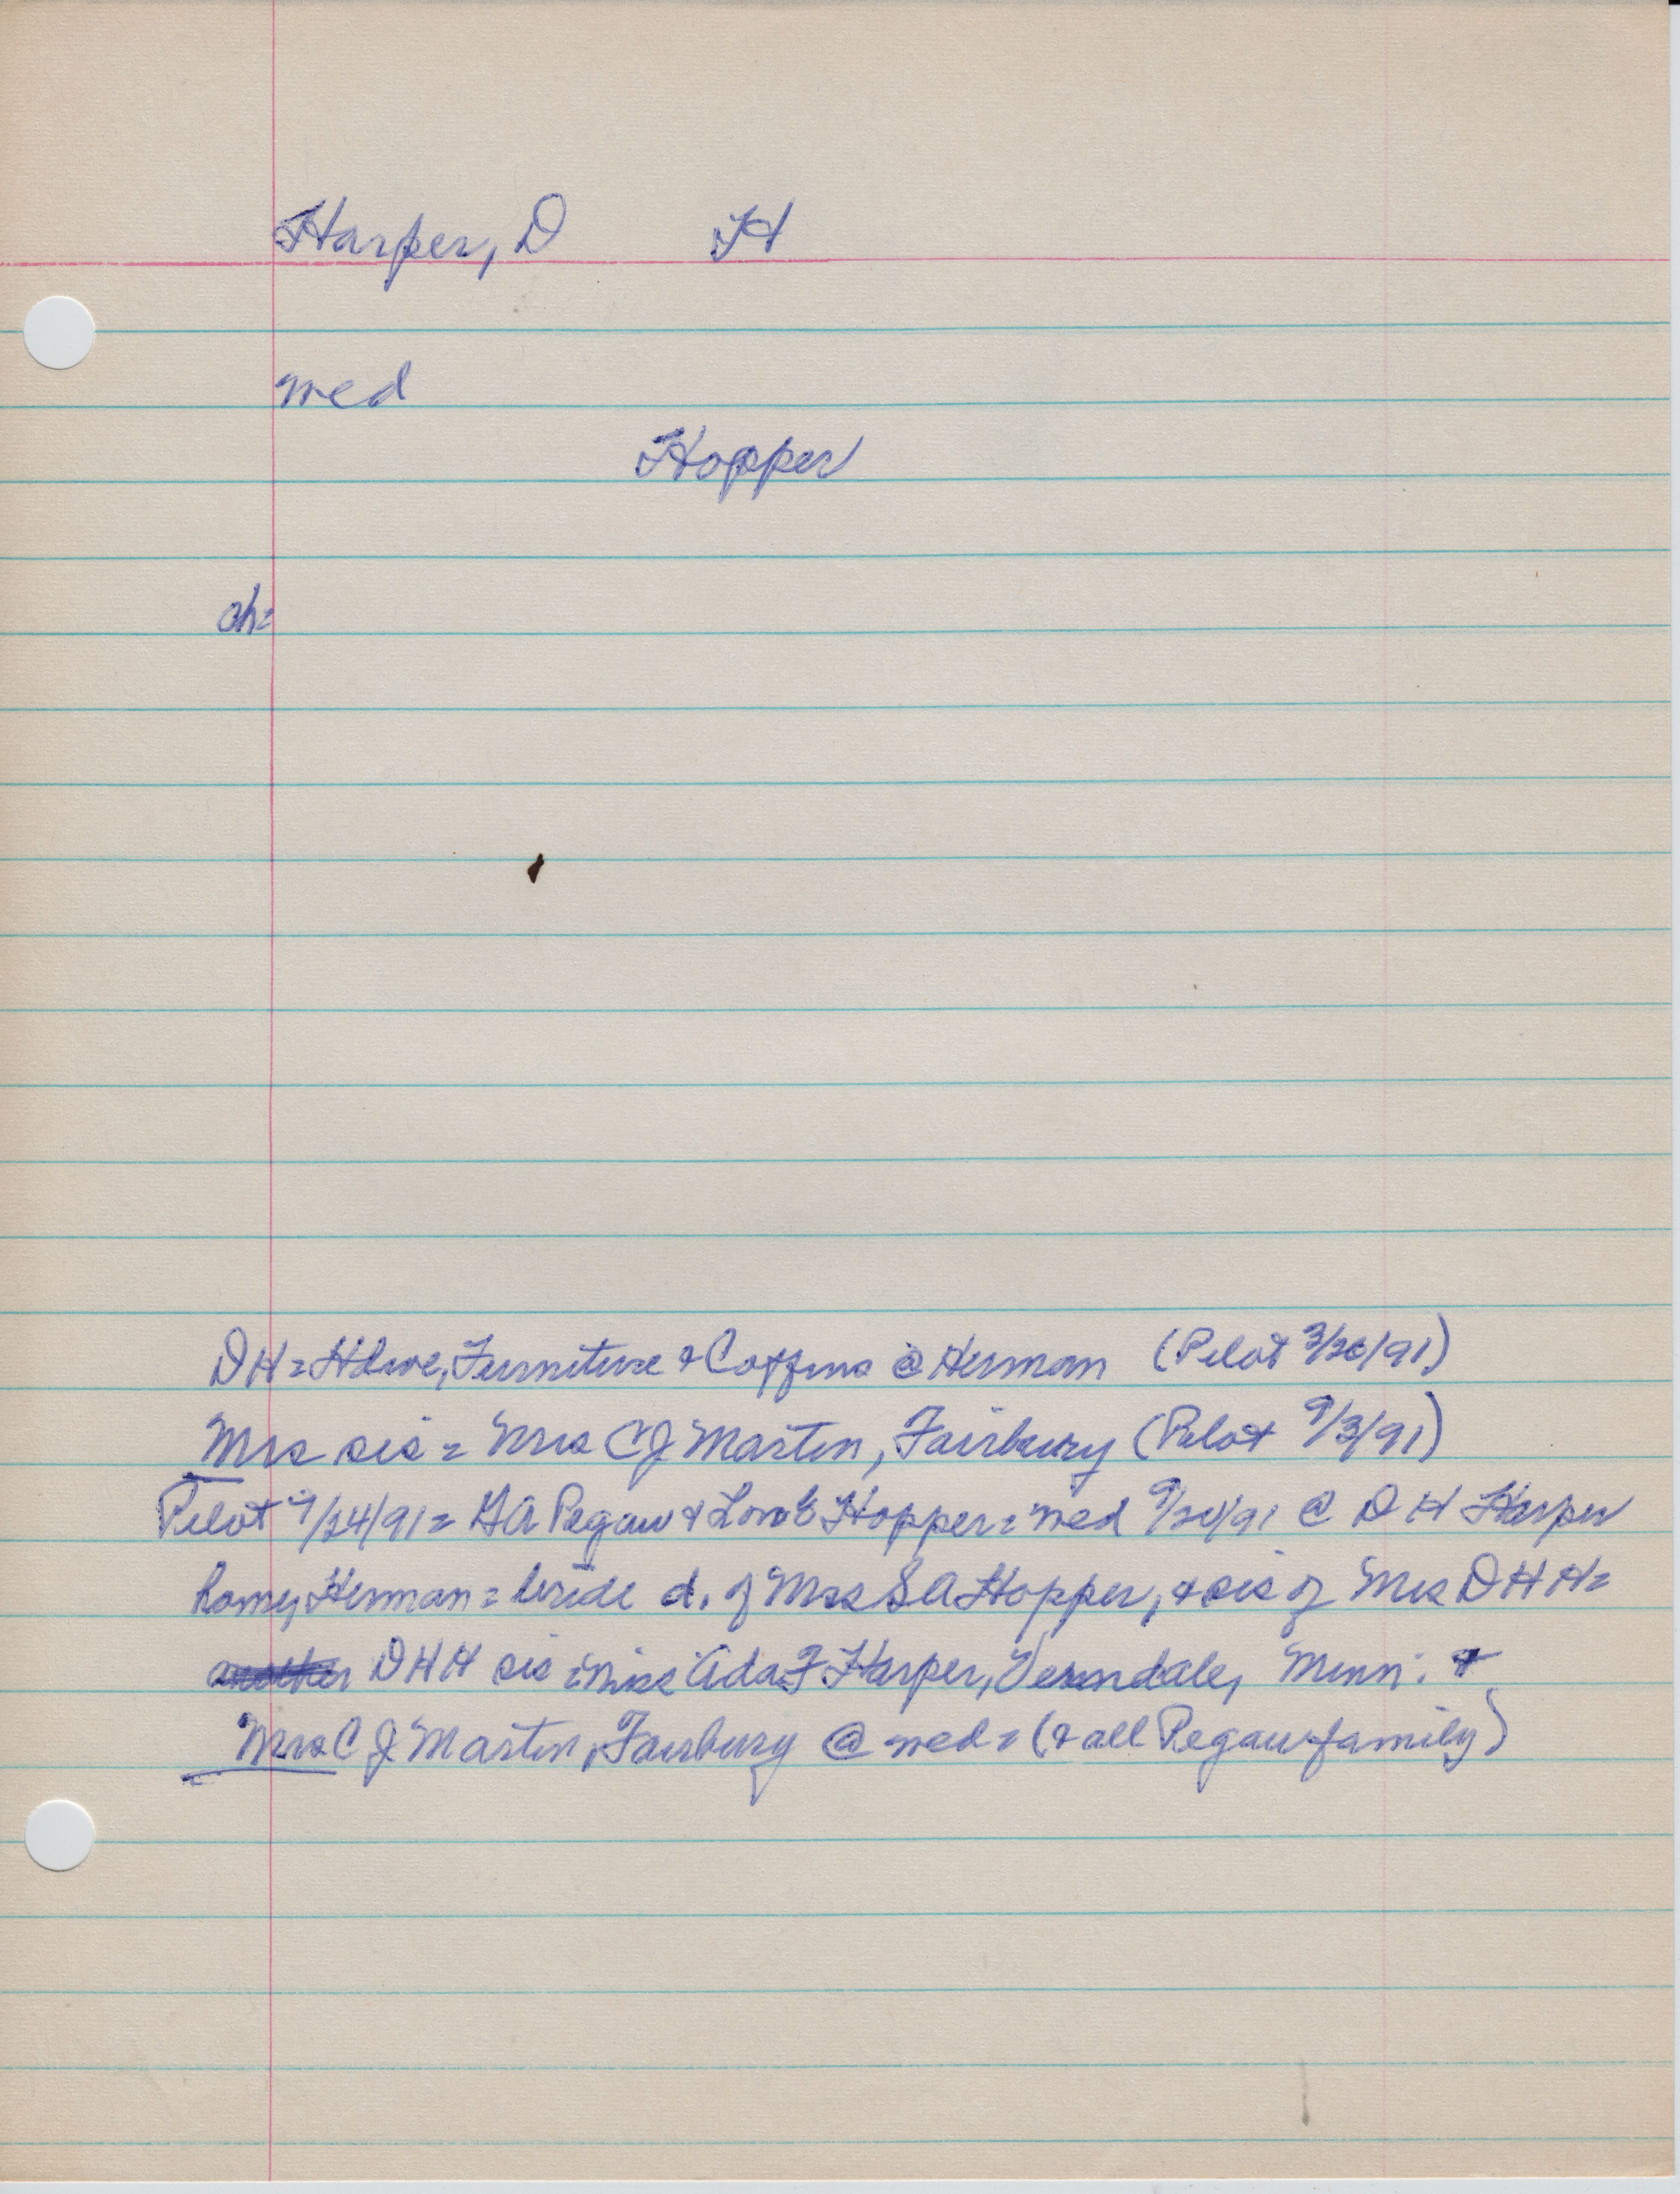 Harper, D H
wed
Hopper
ch=
DH = Hdwe, Furniture & Coffins @ Herman (Pilot 3/26/91)
Mrs sis = Mrs CJ Martin, Fairbury (Pilot 9/3/91)
Pilot 9/24/91 = GA Pegau & Hopper = wed 9/20/91 @ D H Harper
home, Herman = bride d. of Mrs SA Hopper, & sis of Mrs DHH =
another DHH sis = Miss Ada F Harper, Verndale, Minn. &
Mrs C J Martin, Fairbury @ wed = (& all Pegau family)